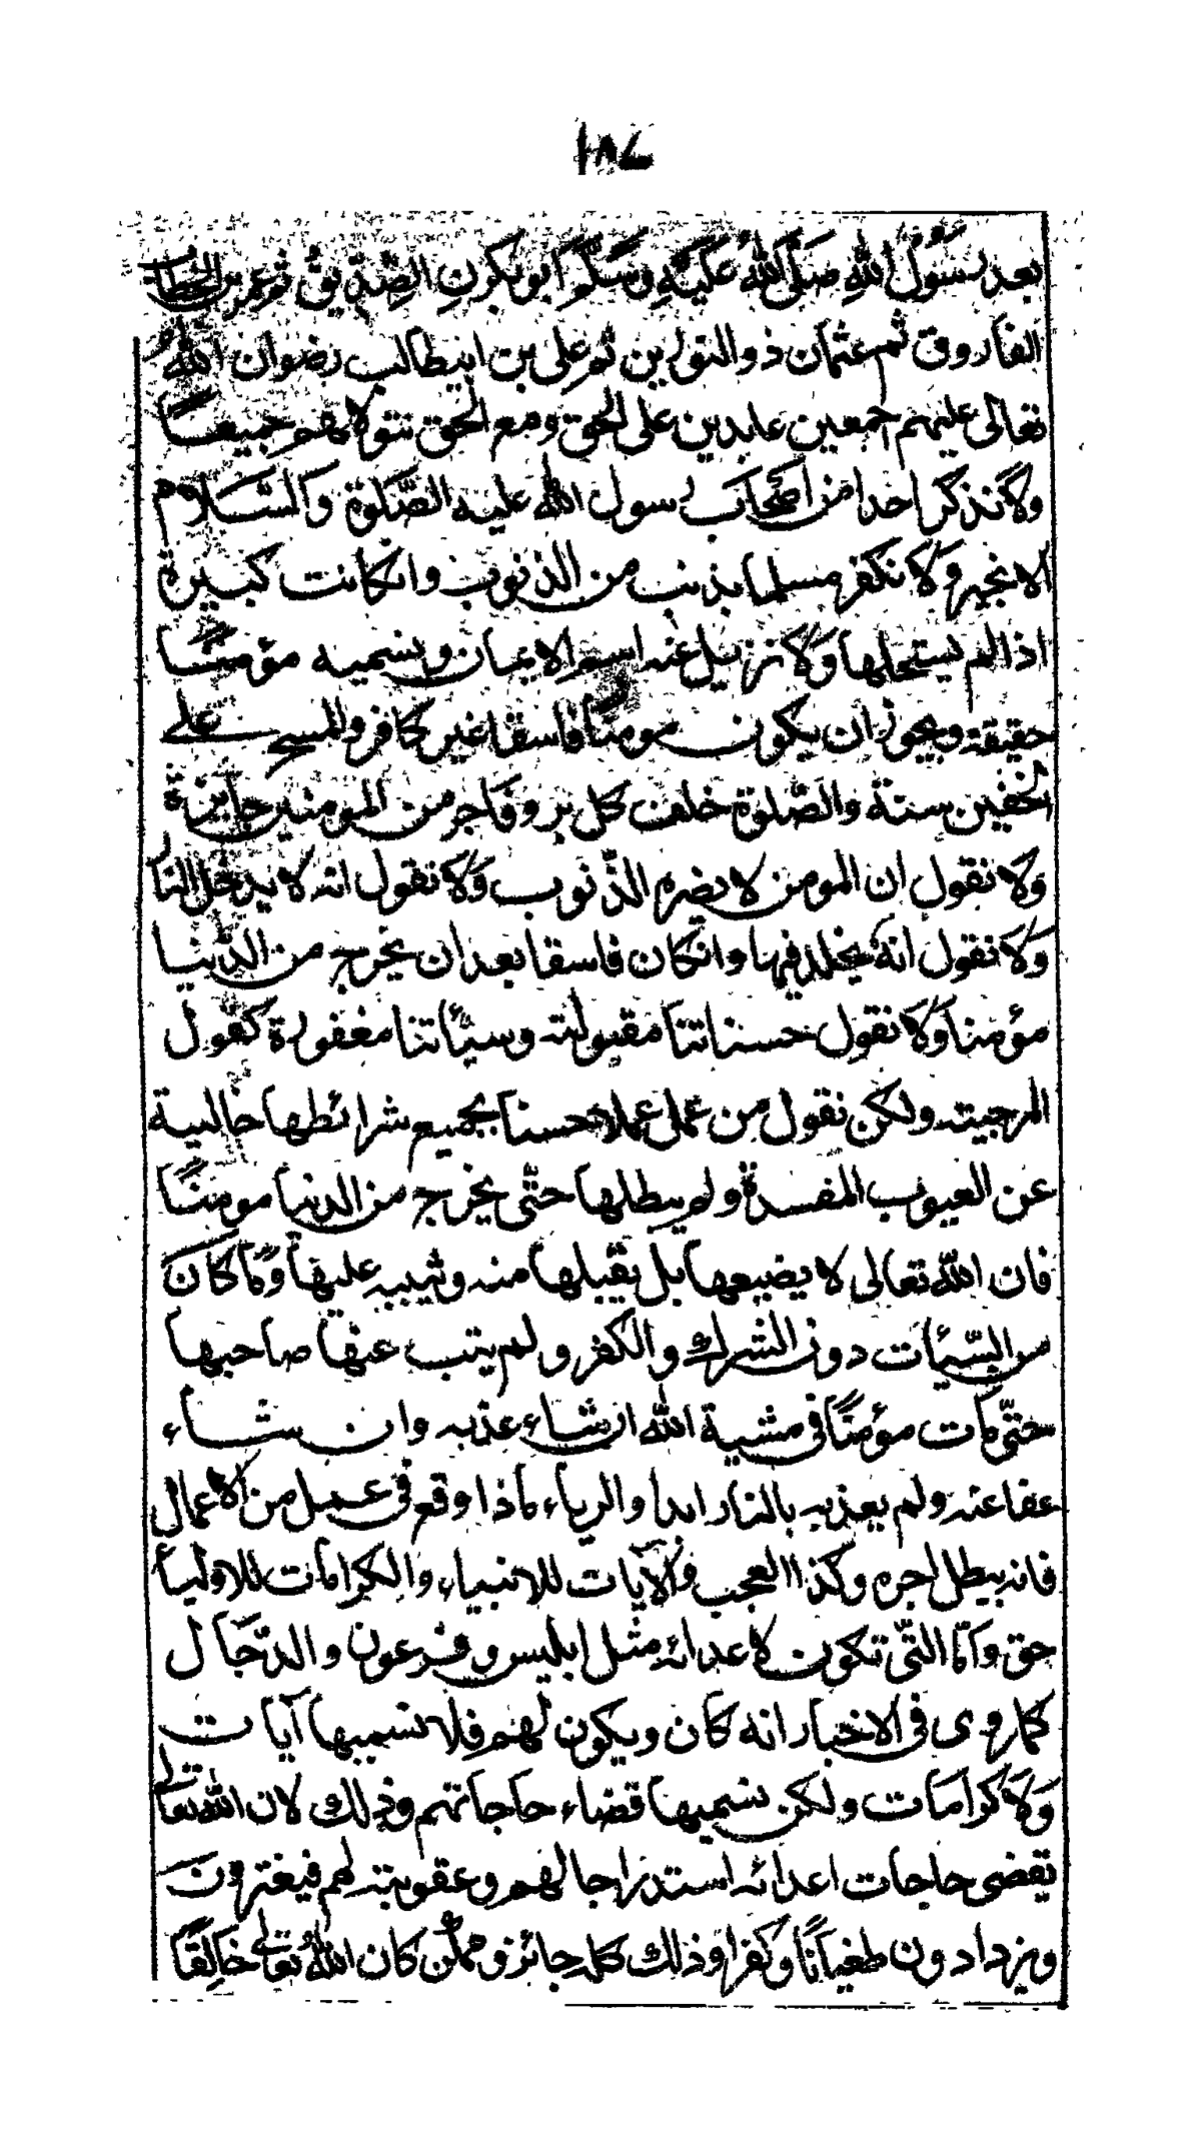 ١٨٧
بعد رسول الله صلى الله عليه وسلم ابو بكرن الصديق ثم عمر بن الخطاب
الفاروق ثم عثمان ذو النورين ثم على بن ابيطالب رضوان الله
تعالى عليهم اجمعين عابدين على الحق ومع الحق نتولاهم جميعا
ولا نذكر احدا من اصحاب رسول الله عليه الصلوة والسلام
الا بخير ولا نكفر مسلما بذنب من الذنوب وانكانت كبيرة
اذا لم يستحلها ولا نزيل عنه اسم الايمان ونسميه مؤمنا
حقيقة ويجوز ان يكون مومنا فاسقا غير كافر والمسح على
الخفين سنة والصلوة خلف كل بر وفاجر من المومنين جايزة
ولا نقول ان المومن لا يضره الذنوب ولا نقول انه لا يدخل النار
ولا نقول انه يخلد فيها وانكان فاسقا بعد ان يخرج من الدنيا
مؤمنا ولا نقول حسناتنا مقبولة وسيأتنا مغفورة كقول
المرجية ولكن نقول من عمل عملا حسنا بجميع شرائطها خالية
عن العيوب المفسدة ولم يبطلها حتى يخرج من الدنيا مومنا
فان الله تعالى لا يضيعها بل يقبلها منه ويثيبه عليها وما كان
من السيئات دون الشرك والكفر ولم يتب عنها صاحبها
حتى مات مؤمنا فى مشية الله ان شاء عذبه وان شاء
عفا عنه ولم يعذبه بالنار ابدا والرياء ماذا وقع فى عمل من الاعمال
فانه يبطل اجره وكذا العجب والآيات للانبياء والكرامات للاوليأ
حق واما التى تكون لاعدائه مثل ابليس وفرعون والدجال
كما روى فى الاخبار انه كان ويكون لهم فلا نسميها آيات
ولا كرامات ولكن نسميها قضاء حاجاتهم وذلك لان الله تعالى
يقضى حاجات اعدائه استدراجا لهم وعقوبة لهم فيغترون
ويزدادون طغيانا وكفرا وذلك كله جائز وممكن كان الله تعالى خالقا